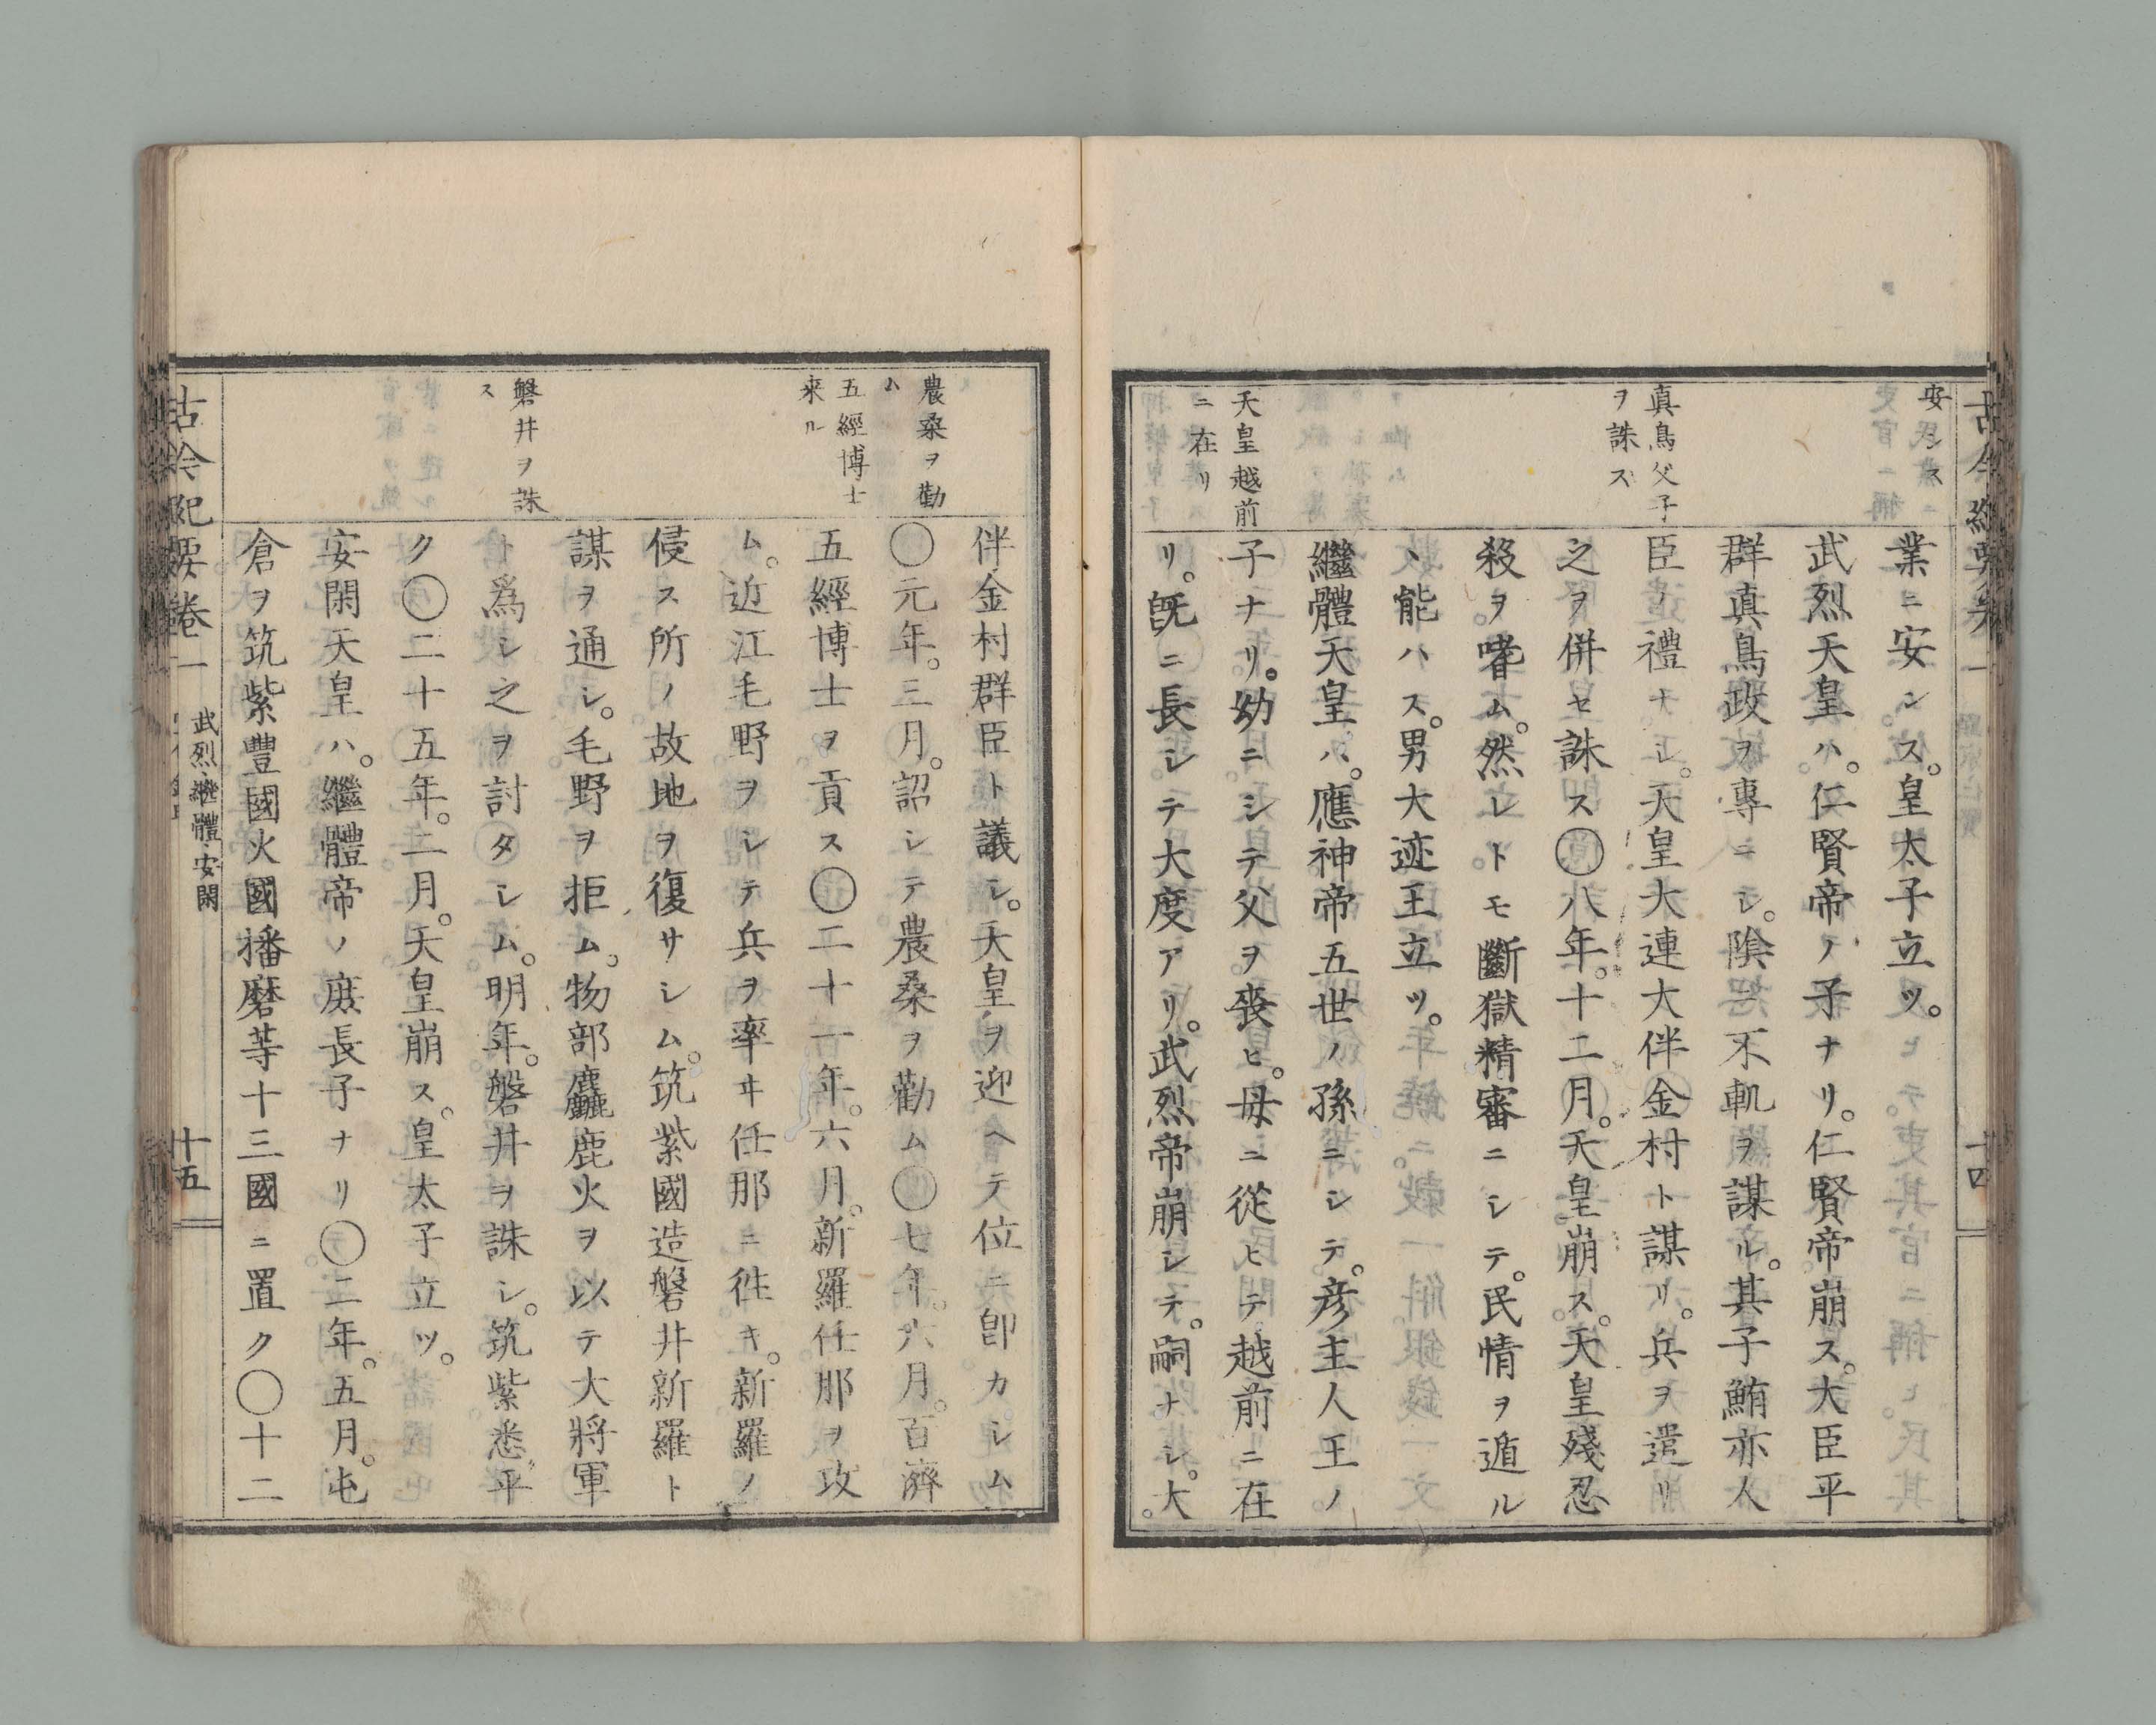 古今紀要卷一
十四
安ンス
業ニ安ンス。皇太子立ツ。
武烈天皇ハ。仁賢帝ノ子ナリ。仁賢帝崩ス。大臣平
群真鳥政ヲ專ニシ。陰ニ不軌ヲ謀ル。其子鮪亦人
真鳥父子
ヲ誅ス
臣ノ禮ナシ。天皇大連大伴金村ト謀リ。兵ヲ遣リ
之ヲ併セ誅ス〇八年。十二月。天皇崩ス。天皇殘忍
殺ヲ嗜ム。然レトモ斷獄精審ニシテ。民情ヲ遁ル
ヽ能ハス。男大迹王立ツ。
繼體天皇ハ。應神帝五世ノ孫ニシテ。彦主人王ノ
天皇越前
ニ在リ
子ナリ。幼ニシテ父ヲ喪ヒ。母ニ從ヒテ越前ニ在
リ。旣ニ長シテ大度アリ。武烈帝崩シテ。嗣ナシ。大
伴金村群臣ト議シ。天皇ヲ迎ヘテ位ニ卽カシム
農桑ヲ勸
ム
〇元年。三月。詔シテ農桑ヲ勸ム〇七年。六月。百濟
五經博士
来ル
五經博士ヲ貢ス〇二十一年。六月。新羅任那ヲ攻
ム。近江毛野ヲシテ兵ヲ率ヰ任那ニ徃キ。新羅ノ
侵ス所ノ故地ヲ復サシム。筑紫國造磐井新羅ト
謀ヲ通シ。毛野ヲ拒ム。物部麤鹿火ヲ以テ大將軍
磐井ヲ誅
ス
ト爲シ之ヲ討タシム。明年。磐井ヲ誅シ。筑紫悉平
ク〇二十五年。二月。天皇崩ス。皇太子立ツ。
安閑天皇ハ。繼體帝ノ庶長子ナリ〇二年。五月。屯
倉ヲ筑紫豐國火國播磨等十三國ニ置ク〇十二
古今紀要卷一
武烈・繼體・安閑
十五